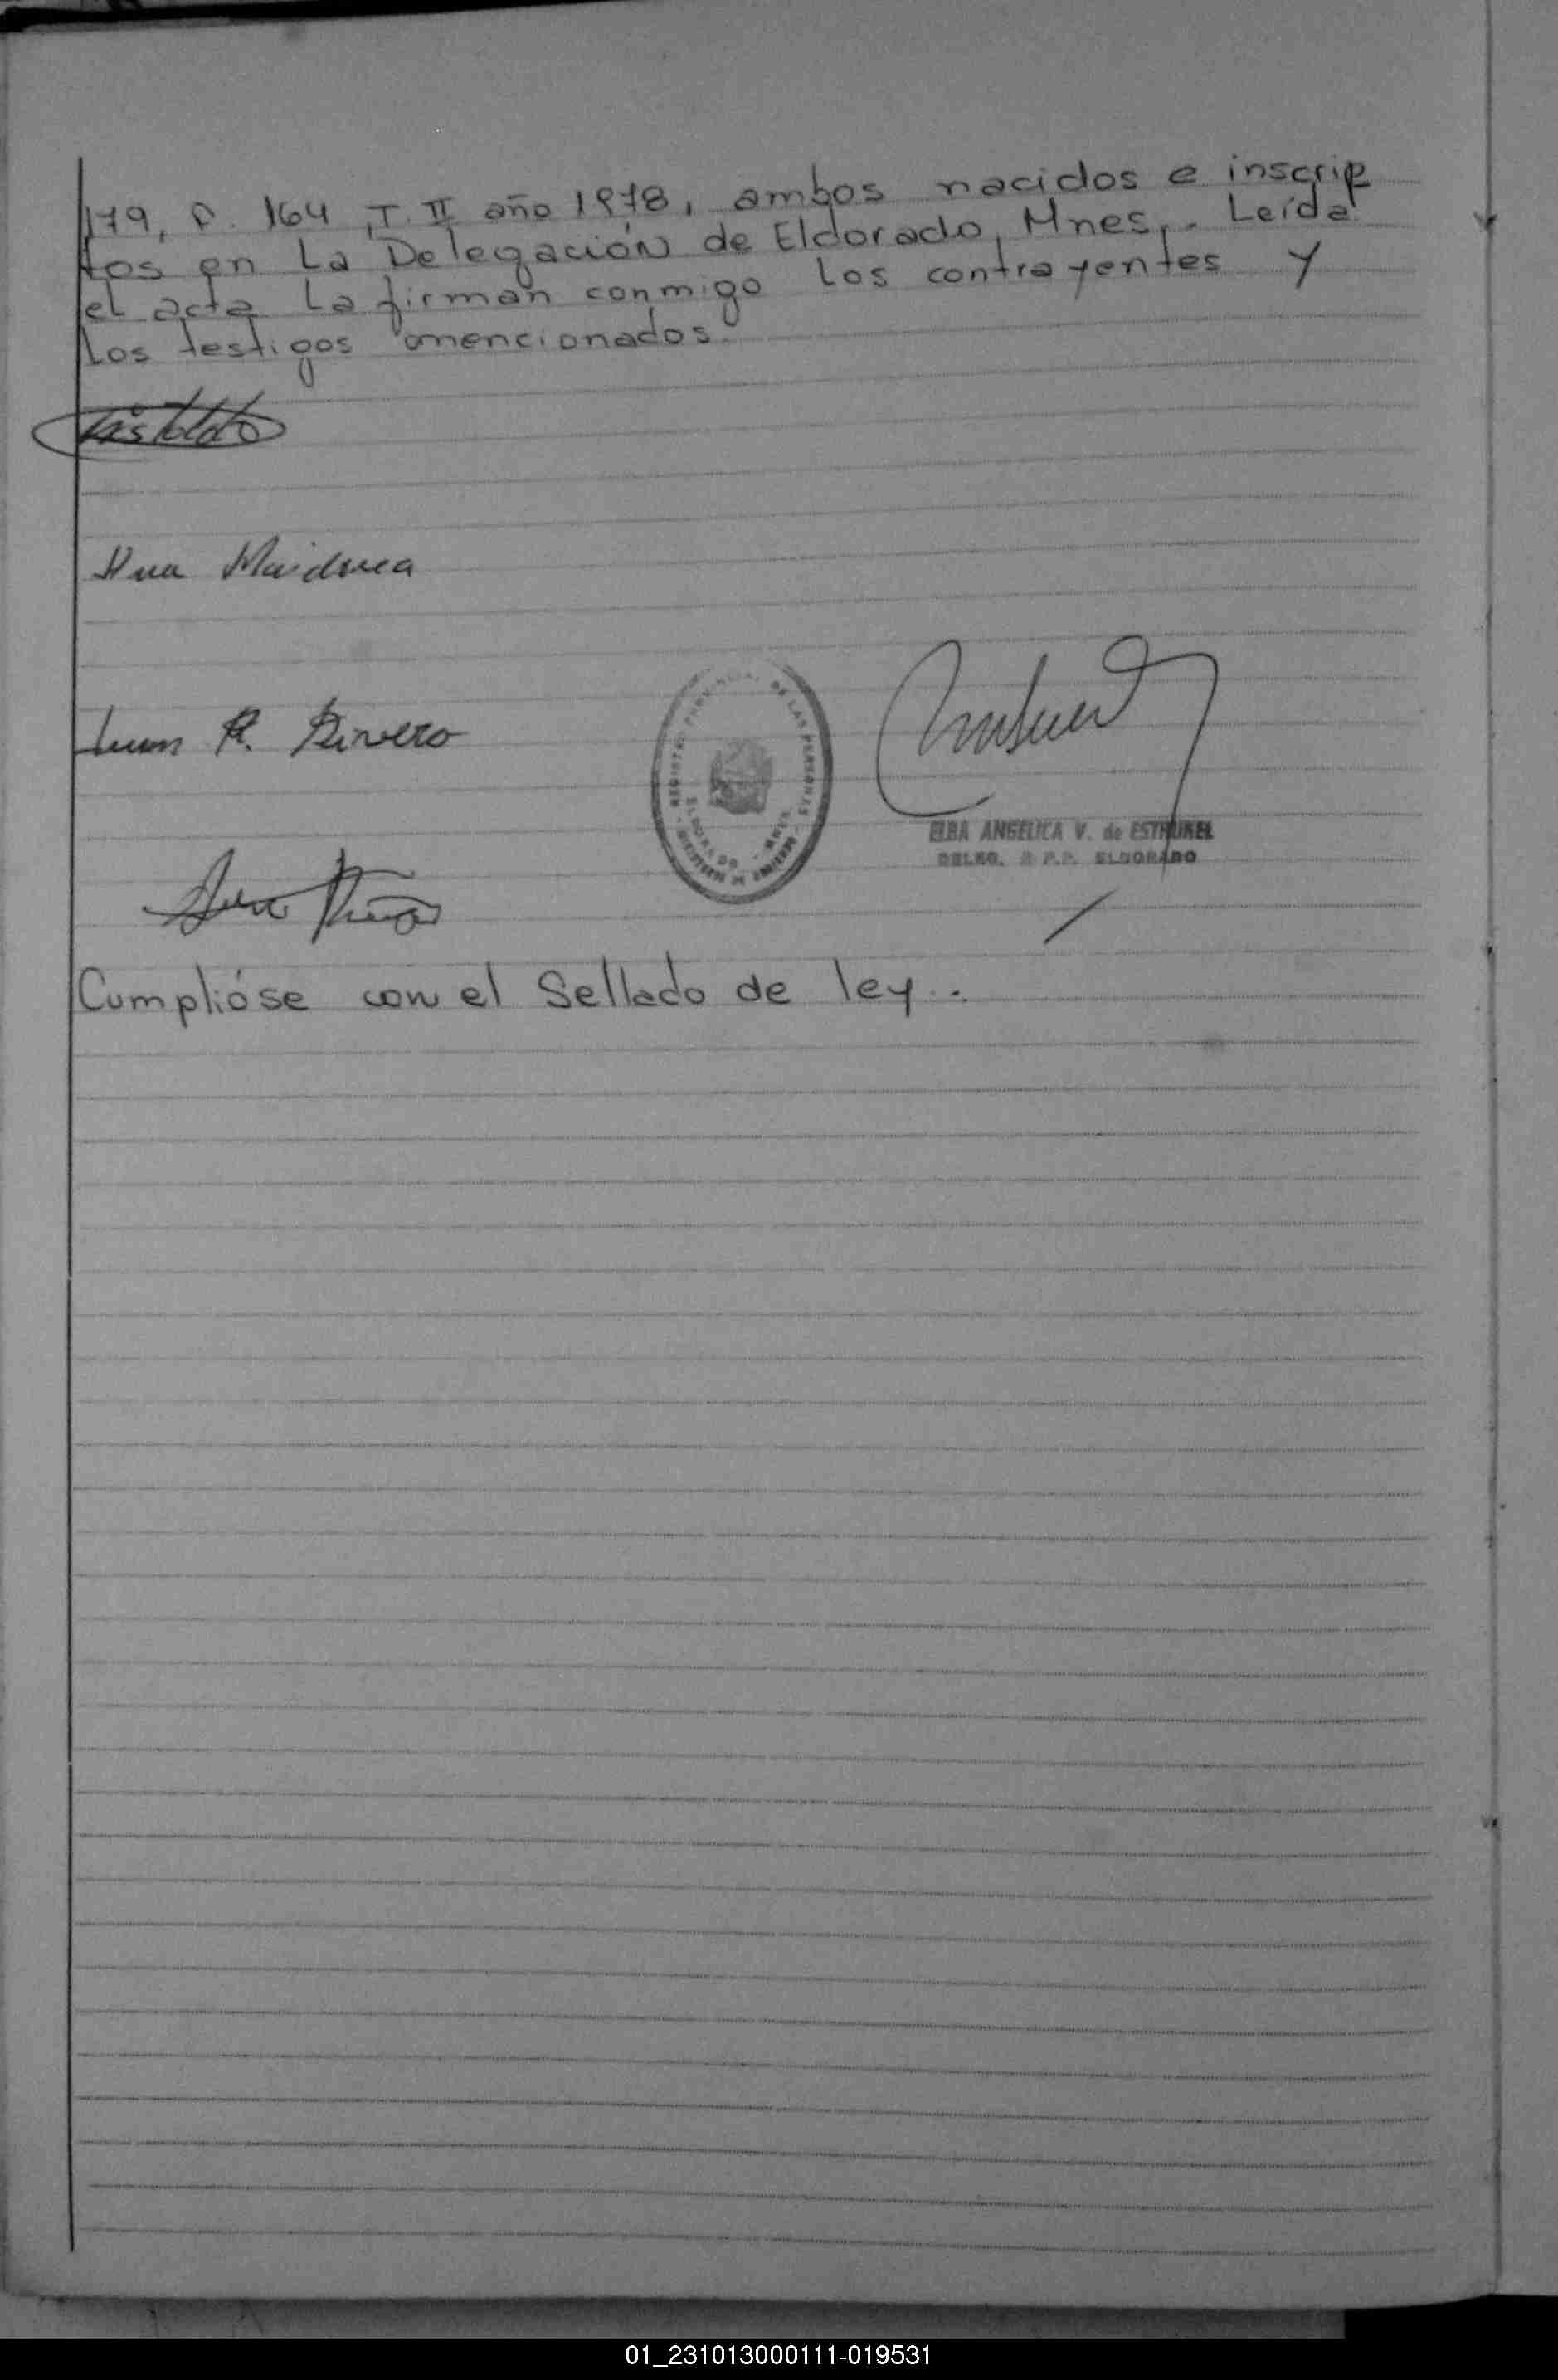 179, F. 164, T. II año 1978, ambos nacidos e inscrip
tos en La Delegación de Eldorado, Mnes,. Leída
el acta La firman conmigo los contrayentes y
Los testigos mencionados.
Juan R. Rivero
REGISTRO PROVINCIAL DE LAS PERSONAS
ELDORADO - MNES.
MINISTERIO DE GOBIERNO
ELBA ANGELICA V. de
DELEG. R P.P. ELDORADO
Cumplióse con el Sellado de ley.-
01_231013000111-019531